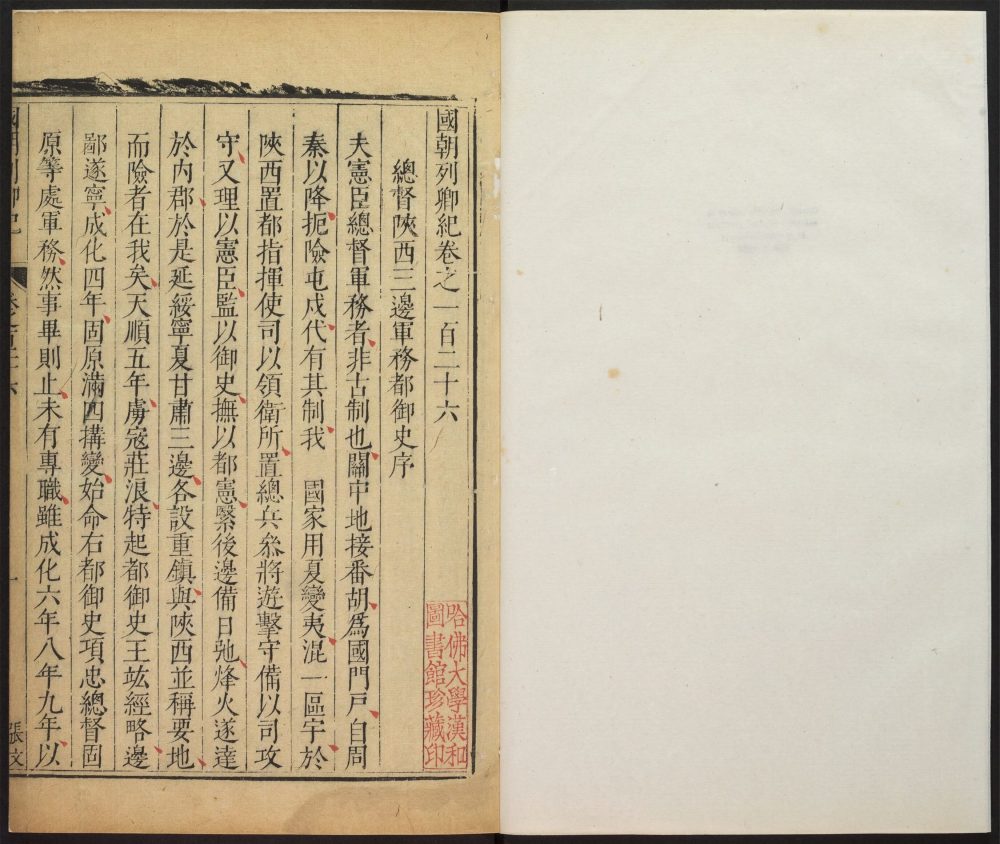 國朝列卿紀卷之一百二十六
總督陝西三邊軍務都御史序
夫憲臣總督軍務者非古制也關中地接番胡爲國門戶自周
秦以降扼險屯戍代有其制我 國家用夏變夷混一區宇於
陝西置都指揮使司以領衛所置總兵叅將遊擊守備以司攻
守又理以憲臣監以御史撫以都憲繄後邊備日弛烽火遂達
於內郡於是延綏寧夏甘肅三邊各設重鎮與陝西並稱要地
而險者在我矣天順五年虜寇莊浪特起都御史王竑經略邊
鄙遂寧成化四年固原滿四搆變始命右都御史項忠總督固
原等處軍務然事畢則止未有專職雖成化六年八年九年以
國朝列卿紀
卷之一百二十六
一
張文
哈佛大學漢和
圖書館珍藏印